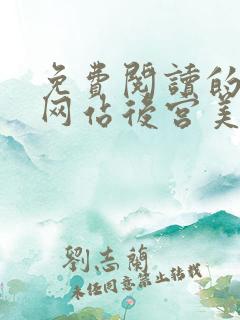 免費閱讀的
网佔後宮美
劉志蘭
未经同意禁止转载